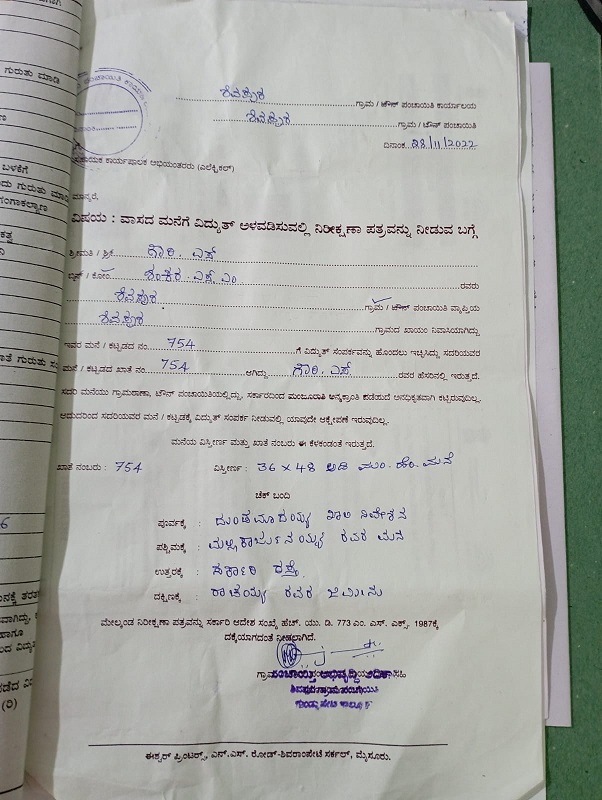 ಶಿವಪುರ ಗ್ರಾಮ / ಟೌನ್ ಪಂಚಾಯಿತಿ ಕಾರ್ಯಾಲಯ
ಶಿವಪುರ ಗ್ರಾಮ / ಟೌನ್ ಪಂಚಾಯಿತಿ
ದಿನಾಂಕ 28/11/2022
ಸಹಾಯಕ ಕಾರ್ಯಪಾಲಕ ಅಭಿಯಂತರರು (ಎಲೆಕ್ಟ್ರಿಕಲ್)
ಮಾನ್ಯರೆ,
ವಿಷಯ : ವಾಸದ ಮನೆಗೆ ವಿದ್ಯುತ್ ಅಳವಡಿಸುವಲ್ಲಿ ನಿರೀಕ್ಷಣಾ ಪತ್ರವನ್ನು ನೀಡುವ ಬಗ್ಗೆ
ಶ್ರೀಮತಿ / ಶ್ರೀ ಗೌರಿ. ಎಸ್
ಬಿನ್ / ಕೋಂ ಶಂಕರ. ಎಸ್ ಎಂ ರವರು
ಶಿವಪುರ ಗ್ರಾಮ / ಟೌನ್ ಪಂಚಾಯಿತಿ ವ್ಯಾಪ್ತಿಯ
ಶಿವಪುರ ಗ್ರಾಮದ ಖಾಯಂ ನಿವಾಸಿಯಾಗಿದ್ದು
ಇವರ ಮನೆ / ಕಟ್ಟಡದ ನಂ. 754 ಗೆ ವಿದ್ಯುತ್ ಸಂಪರ್ಕವನ್ನು ಹೊಂದಲು ಇಚ್ಛಿಸಿದ್ದು ಸದರಿಯವರ
ಮನೆ / ಕಟ್ಟಡದ ಖಾತೆ ನಂ. 754 ಆಗಿದ್ದು ಗೌರಿ. ಎಸ್ ರವರ ಹೆಸರಿನಲ್ಲಿ ಇರುತ್ತದೆ.
ಸದರಿ ಮನೆಯು ಗ್ರಾಮಠಾಣಾ, ಟೌನ್ ಪಂಚಾಯಿತಿಯಲ್ಲಿದ್ದು, ಸರ್ಕಾರದಿಂದ ಮಂಜೂರಾತಿ ಪಡೆಯದೆ ಅನಧಿಕೃತವಾಗಿ ಕಟ್ಟಿರುವುದಿಲ್ಲ.
ಆದುದರಿಂದ ಸದರಿಯವರ ಮನೆ / ಕಟ್ಟಡಕ್ಕೆ ವಿದ್ಯುತ್ ಸಂಪರ್ಕ ನೀಡುವಲ್ಲಿ ಯಾವುದೇ ಆಕ್ಷೇಪಣೆ ಇರುವುದಿಲ್ಲ.
ಮನೆಯ ವಿಸ್ತೀರ್ಣ ಮತ್ತು ಖಾತೆ ನಂಬರು ಈ ಕೆಳಕಂಡಂತೆ ಇರುತ್ತದೆ.
ಖಾತೆ ನಂಬರು : 754 ವಿಸ್ತೀರ್ಣ : 36 x 48 ಅಡಿ ಮಂ. ಹೆಂ. ಮನೆ
ಚೆಕ್ ಬಂದಿ
ಪೂರ್ವಕ್ಕೆ : ಖಾಲಿ ನಿವೇಶನ
ಪಶ್ಚಿಮಕ್ಕೆ : ಮಲ್ಲಿಕಾರ್ಜುನಯ್ಯ ರವರ ಮನೆ
ಉತ್ತರಕ್ಕೆ : ಸರ್ಕಾರಿ ರಸ್ತೆ
ದಕ್ಷಿಣಕ್ಕೆ : ರಾಚಯ್ಯ ರವರ ಜಮೀನು
ಮೇಲ್ಕಂಡ ನಿರೀಕ್ಷಣಾ ಪತ್ರವನ್ನು ಸರ್ಕಾರಿ ಆದೇಶ ಸಂಖ್ಯೆ ಹೆಚ್. ಯು. ಡಿ. 773 ಎಂ. ಎಸ್. ಎಕ್ಸ್. 1987ಕ್ಕೆ
ದಕ್ಕೆಯಾಗದಂತೆ ನೀಡಲಾಗಿದೆ.
ಪಂಚಾಯಿತಿ ಅಭಿವೃದ್ಧಿ ಅಧಿಕಾರಿ
ಶಿವಪುರ ಗ್ರಾಮ ಪಂಚಾಯಿತಿ
ಈಶ್ವರ್ ಪ್ರಿಂಟರ್ಸ್, ಎನ್.ಎಸ್. ರೋಡ್-ಶಿವರಾಂಪೇಟೆ ಸರ್ಕಲ್, ಮೈಸೂರು.